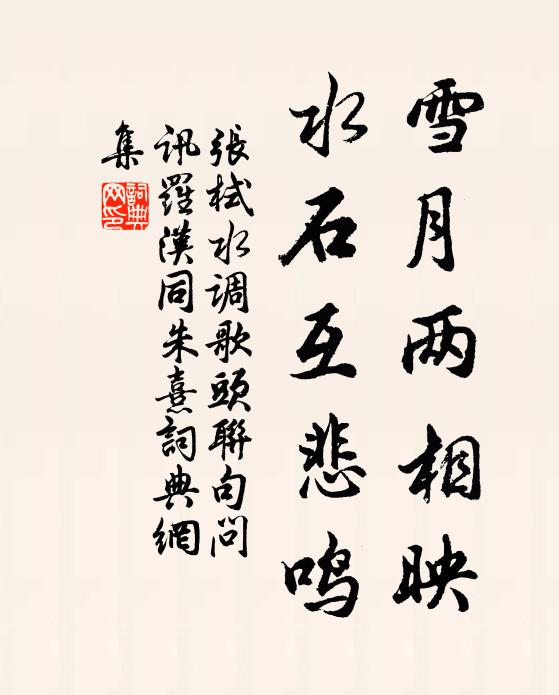 雪月两相映
水石互悲鸣
張栻水调歌頭聯句問
訊羅漢同朱熹詞典網
集
詞典
网印